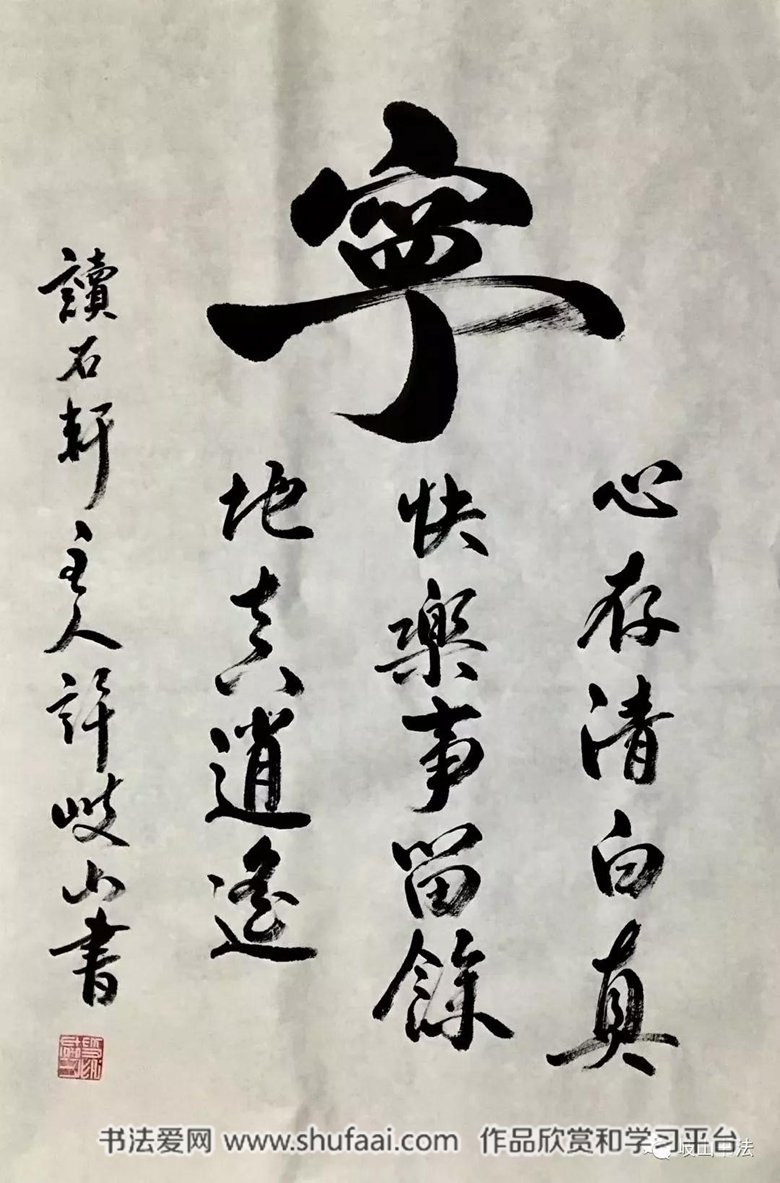 寧
心存清白真
快樂事留餘
地真逍遙
讀石軒主人許岐山書
书法爱网 www.shufaai.com 作品欣赏和学习平台
岐山书法